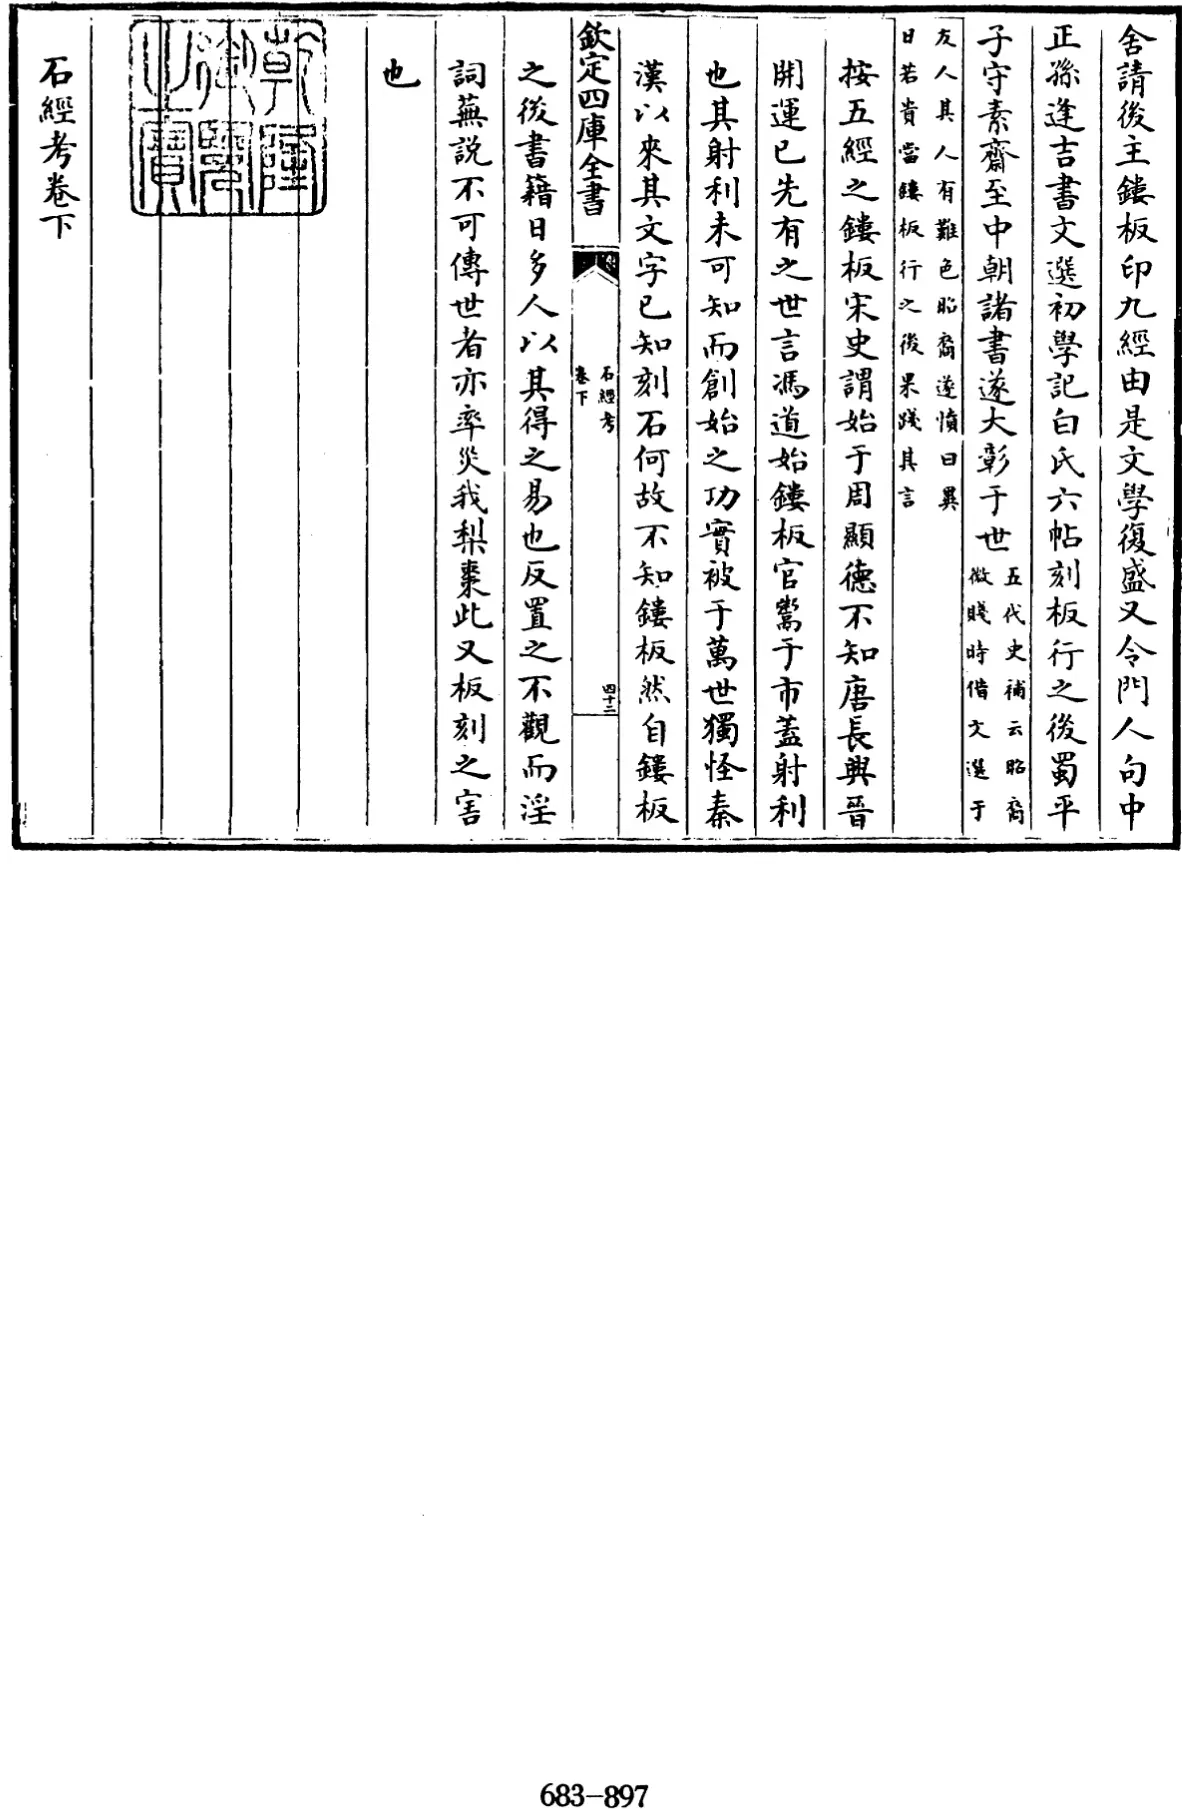 舍請後主鏤板印九經由是文學復盛又令門人句中
正孫逢吉書文選初學記白氏六帖刻板行之後蜀平
子守素齋至中朝諸書遂大彰于世五代史補云昭裔
微賤時借文選于
友人其人有難色昭裔遂憤曰異
日若貴當鏤板行之後果踐其言
按五經之鏤板宋史謂始于周顯德不知唐長興晉
開運已先有之世言馮道始鏤板官鬻于市蓋射利
也其射利未可知而創始之功實被于萬世獨怪秦
漢以來其文字已知刻石何故不知鏤板然自鏤板
欽定四庫全書
石經考
卷下
四十二
之後書籍日多人以其得之易也反置之不觀而淫
詞蕪說不可傳世者亦率災我梨棗此又板刻之害
也
乾隆御覽之寶
石經考卷下
683-897